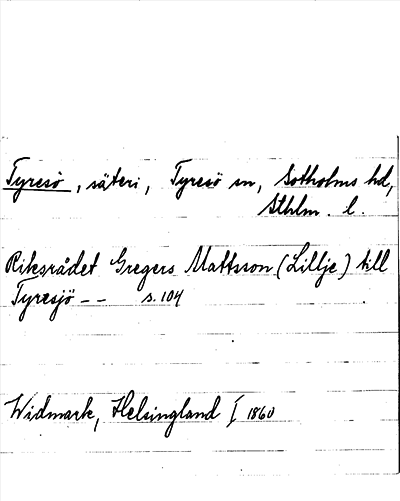 Tyresö, säteri, Tyresö sn, Sotholms hd,
Sthlm. l.
Riksrådet Gregers Mattsson (Lillje) till
Tyresjö -- s. 104
Widmark, Helsingland I 1860